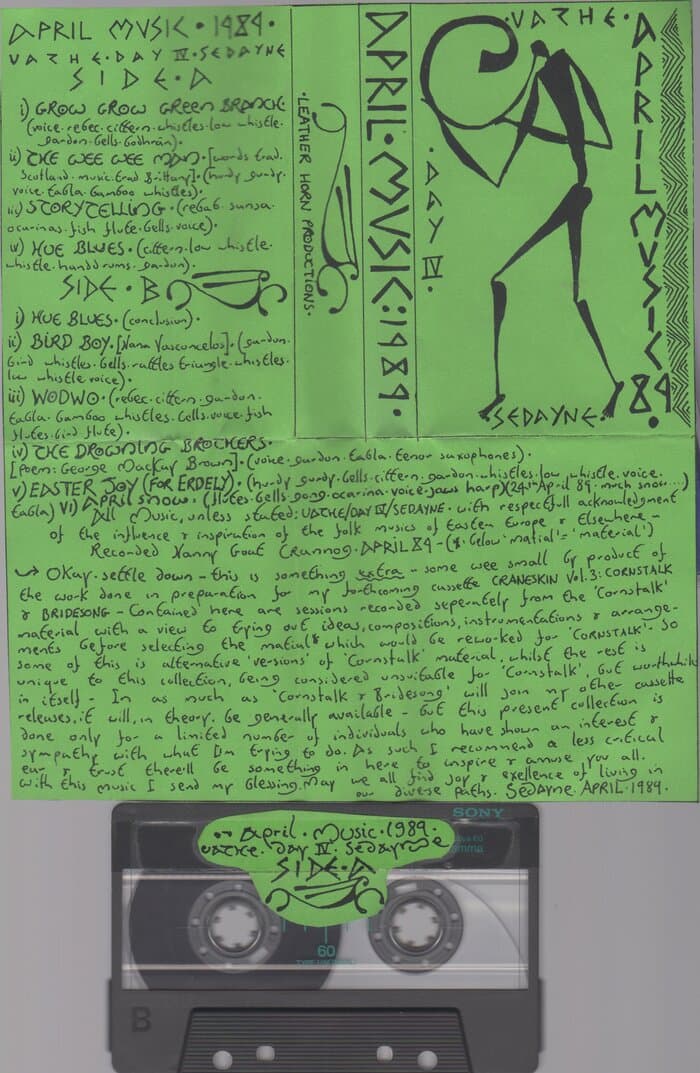 APRIL MUSIC · 1989 ·
VATHE · DAY IV · SEDAYNE
SIDE · A
i) GROW GROW GREEN BRANCH ·
(voice · rebec · cittern · whistles · low whistle ·
gardon · bells · bodhrán) ·
ii) THE WEE WEE MAN · [words trad.
Scotland · music trad Brittany] · (hurdy gurdy ·
voice · tabla · bamboo whistles) ·
iii) STORYTELLING · (rebab · sunsa ·
ocarinas · fish flute · bells · voice) ·
iv) HUE BLUES · (cittern · low whistle ·
whistle · handdrums · gardon) ·
SIDE · B
i) HUE BLUES · (conclusion) ·
ii) BIRD BOY · [Nana Vasconcelos] · (gardon ·
bird whistles · bells · rattles triangle · whistles ·
low whistle · voice) ·
iii) WODWO · (rebec · cittern · gardon ·
tabla · bamboo whistles · bells · voice · fish
flutes · bird flute) ·
iv) THE DROWNING BROTHERS ·
[Poem: George MacKay Brown] · (voice · gardon · tabla · tenor saxophones) ·
v) EASTER JOY (FOR ERDELY) · (hurdy gurdy · bells · cittern · gardon · whistles · low whistle · voice ·
tabla) vi) APRIL SNOW · (flutes · bells · gong · ocarina · voice · jaws harp) (24th April 89 · much snow...)
All Music, unless stated: VATHE/DAY IV/SEDAYNE · with respectfull acknowledgment
of the influence & inspiration of the folk musics of Eastern Europe & Elsewhere -
Recorded Nanny Goat Crannog · APRIL 89 - (*: below 'matial' = 'material')
Okay · settle down - this is something extra - some wee small by product of
the work done in preparation for my forthcoming cassette CRANESKIN Vol. 3: CORNSTALK
& BRIDESONG - Contained here are sessions recorded seperately from the 'Cornstalk'
material with a view to trying out ideas, compositions, instrumentations & arrange-
ments before selecting the matial* which would be reworked for 'CORNSTALK' · So
some of this is alternative 'versions' of 'Cornstalk' material, whilst the rest is
unique to this collection, being considered unsuitable for 'Cornstalk', but worthwhile
in itself - In as much as 'Cornstalk & Bridesong' will join my other cassette
releases, it will, in theory, be generally available - but this present collection is
done only for a limited number of individuals who have shown an interest &
sympathy with what I'm trying to do. As such I recommend a less critical
ear & trust there'll be something in here to inspire & amuse you all.
With this music I send my blessing. May we all find joy & exellence of living in
our diverse paths. SEDAYNE. APRIL · 1989 ·
· LEATHER HORN PRODUCTIONS ·
APRIL · MUSIC : 1989 ·
· VATHE ·
· DAY IV ·
· SEDAYNE ·
APRIL MUSIC 89 ·
SONY
April · Music · 1989 ·
VATHE · Day IV · Sedayne
SIDE · A
60
B